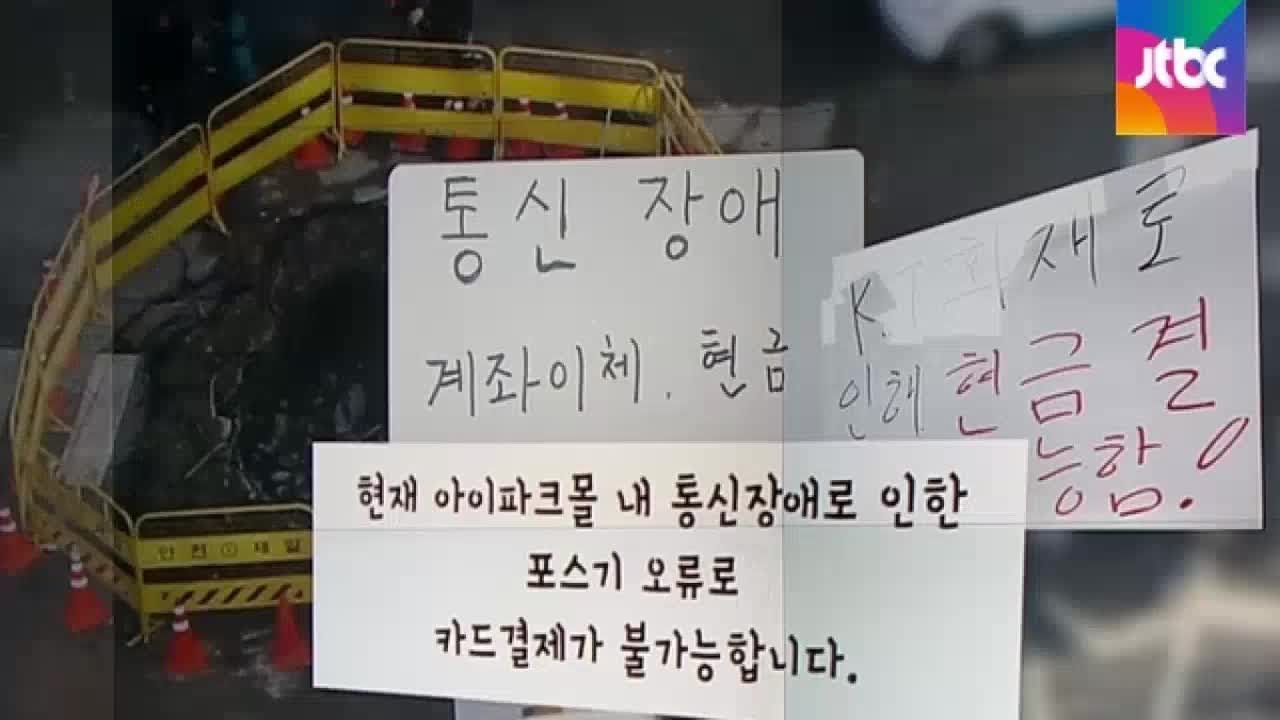 jtbc
통신 장애
계좌이체. 현금
KT화재로
인해 현금결
능함.
현재 아이파크몰 내 통신장애로 인한
포스기 오류로
카드결제가 불가능합니다.
안전제일